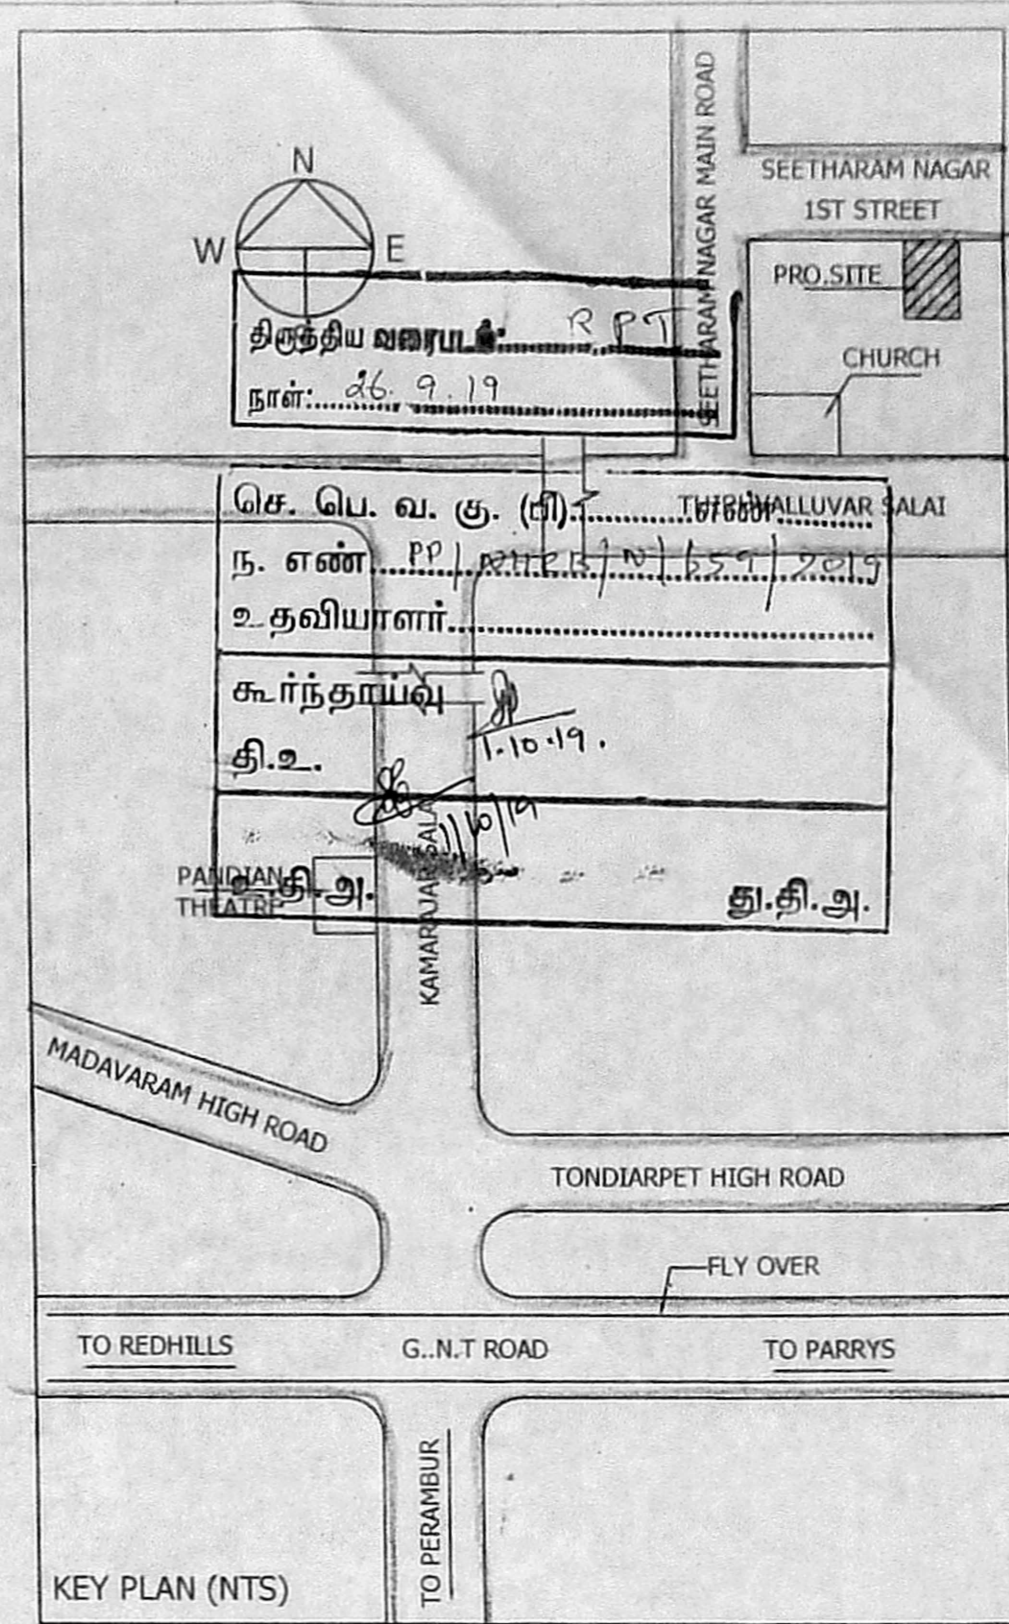 SEETHARAM NAGAR MAIN ROAD
SEETHARAM NAGAR
1ST STREET
N
W E
PRO.SITE
திருத்திய வரைபடம்: R P T
CHURCH
நாள்: 26. 9. 19
செ. பெ. வ. கு. (பி)
THIRUVALLUVAR SALAI
ந. எண் PP / NHRB / N / 659 / 2019
உதவியாளர்
கூர்ந்தாய்வு
1.10.19.
தி.உ.
1/10/19
PANDIAN
THEATRE
தி.அ.
து.தி.அ.
KAMARAJAR SALAI
MADAVARAM HIGH ROAD
TONDIARPET HIGH ROAD
FLY OVER
TO REDHILLS G..N.T ROAD TO PARRYS
TO PERAMBUR
KEY PLAN (NTS)